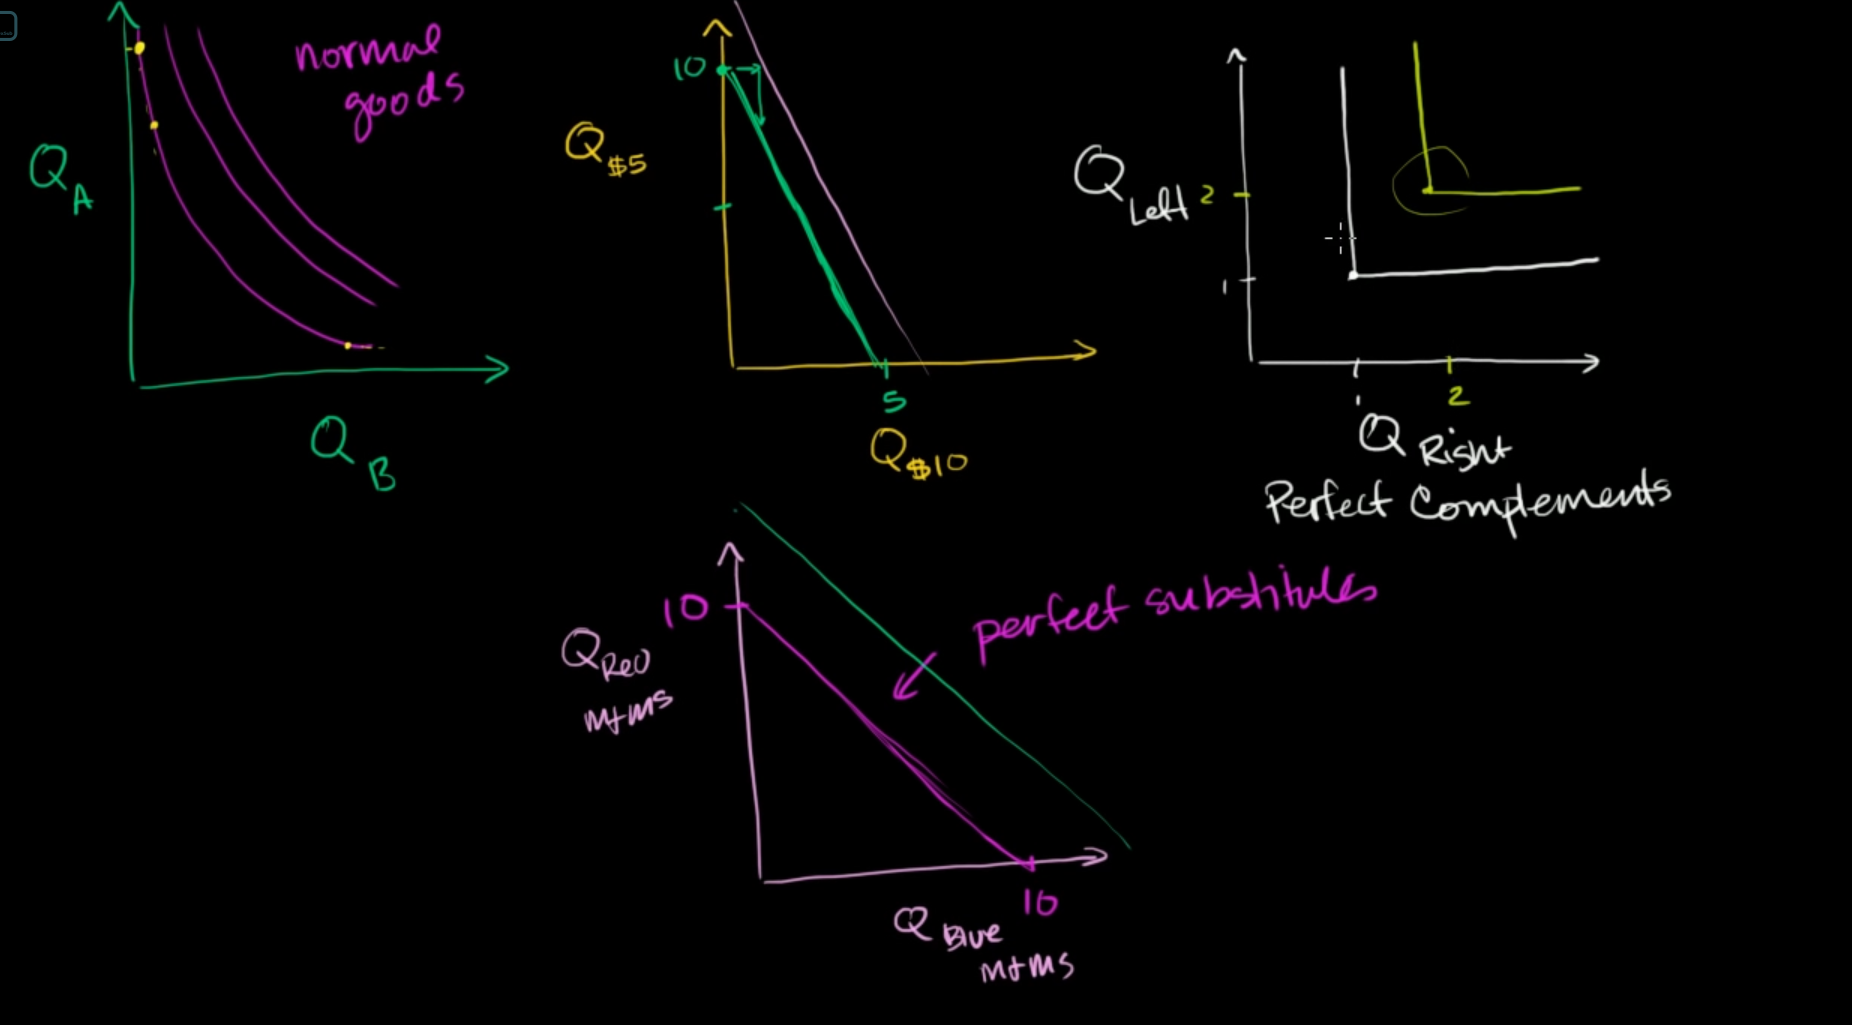 normal
goods
Q A
Q B
10
Q $5
5
Q $10
Q Left
2
1
2
Q Right
Perfect Complements
perfect substitutes
10
Q Red
M+Ms
10
Q Blue
M+Ms